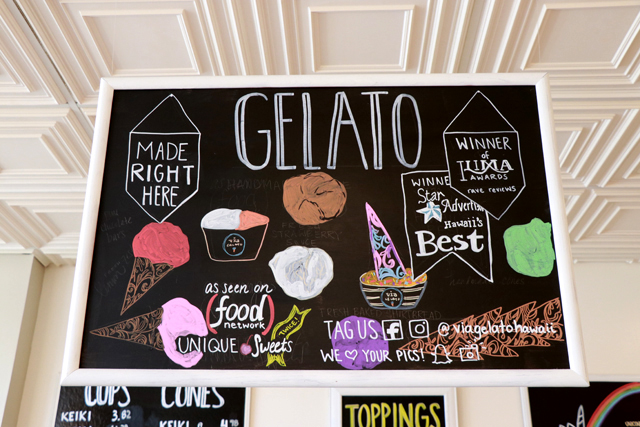 GELATO
MADE
RIGHT
HERE
WINNER
of
LUXA
AWARDS
rave reviews
WINNE
Star
Advertiser
Hawaii's
Best
via
gelato
as seen on
food
network
TWICE!
UNIQUE Sweets
via
gelato
TAG US @viagelatohawaii
WE YOUR PICS!
CUPS
KEIKI 3.82
CONES
KEIKI
TOPPINGS